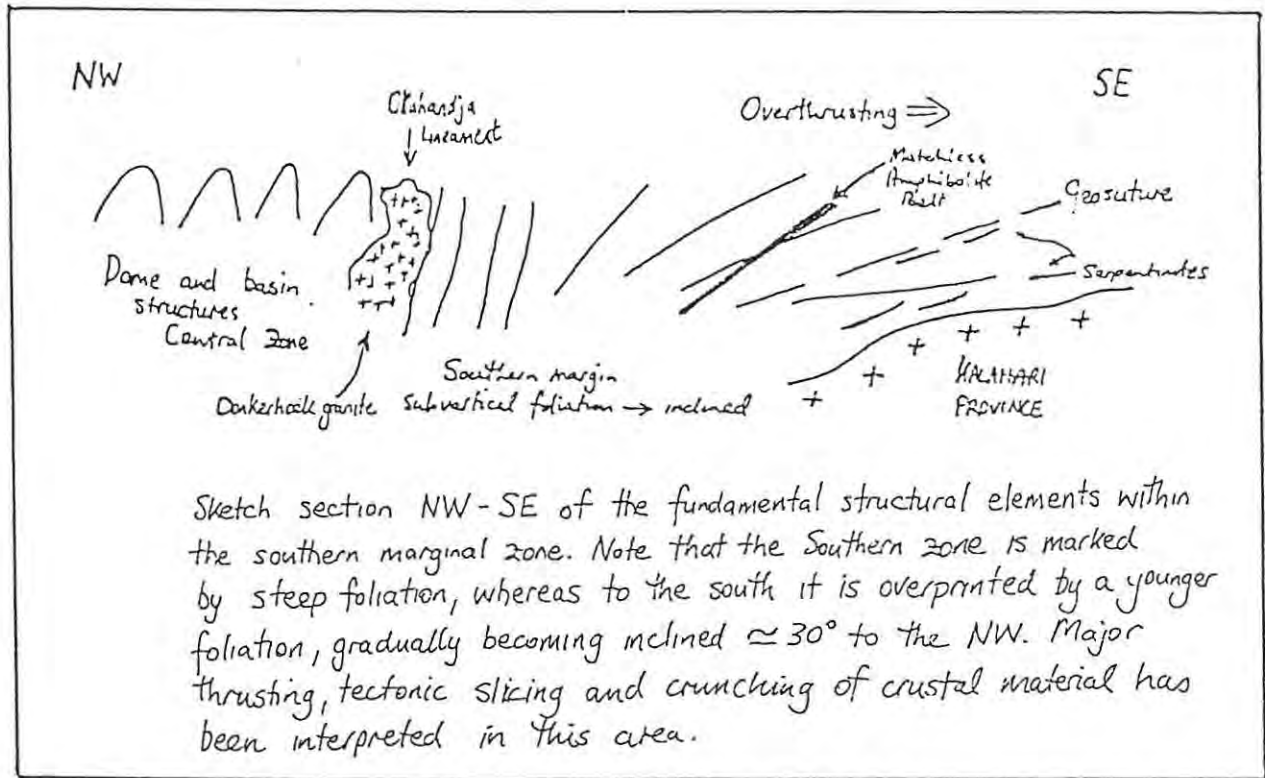 NW
SE
Okahandja
Lineament
Overthrusting
Matchless
Amphibolite
Belt
Geosuture
Serpentinites
Dome and basin
structures
Central Zone
Donkerhoek granite
Southern margin
Subvertical foliation → inclined
KALAHARI
PROVINCE
Sketch section NW-SE of the fundamental structural elements within
the southern marginal zone. Note that the Southern zone is marked
by steep foliation, whereas to the south it is overprinted by a younger
foliation, gradually becoming inclined ≃ 30° to the NW. Major
thrusting, tectonic slicing and crunching of crustal material has
been interpreted in this area.